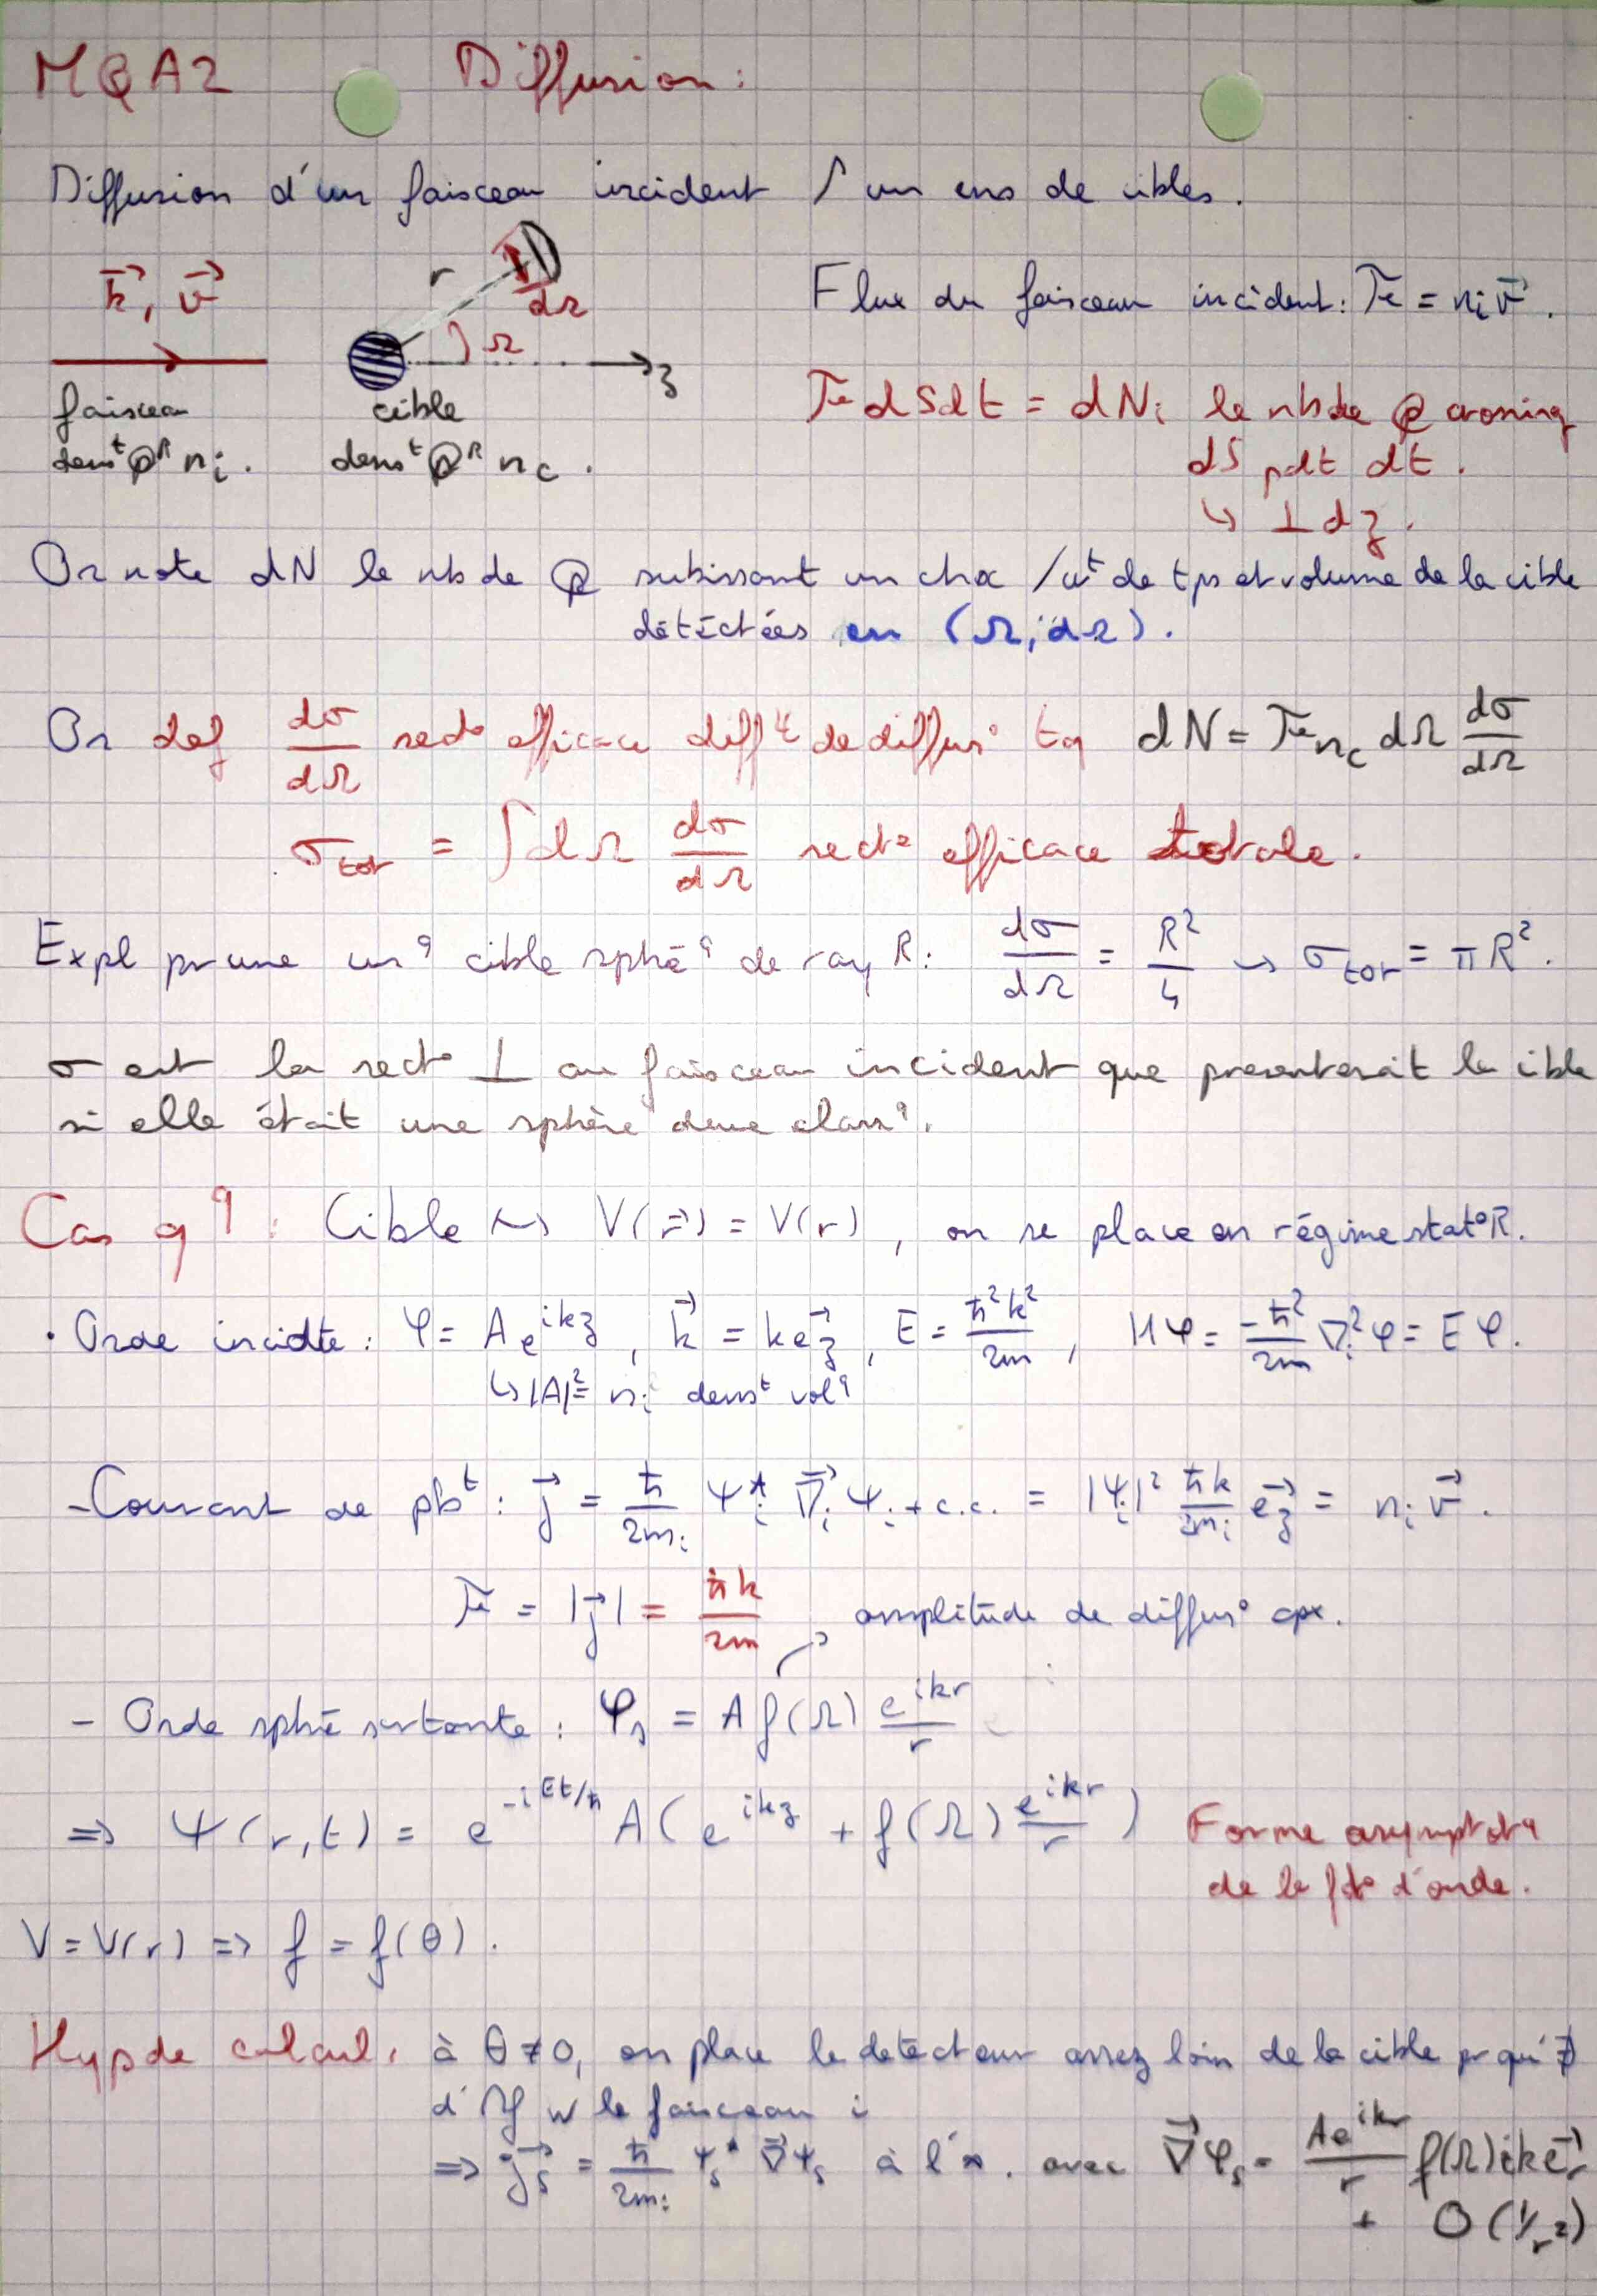 MQA2 Diffusion :
Diffusion d'un faisceau incident / un ens de cibles.
k⃗, v⃗ r dΩ Flux du faisceau incident : F = nᵢ v⃗.
Ω z
faisceau cible F dS dt = dNᵢ le nb de φ crossing
densᵗ φᴿ nᵢ. densᵗ φᴿ n_c. dS pdt dt.
↳ ⊥ dz.
On note dN le nb de φ subissant un choc /uᵗ de tps et volume de la cible
détéctées en (Ω, dΩ).
On def dσ/dΩ sect° efficace diffᵗˡ de diffus° tq dN = F n_c dΩ dσ/dΩ
σ_tot = ∫ dΩ dσ/dΩ sect° efficace totale.
Expl pr une un⁹ cible sphé⁹ de ray R : dσ/dΩ = R²/4 → σ_tot = πR².
σ est la sect° ⊥ au faisceau incident que presenterait la cible
si elle était une sphère dure class⁹.
Cas q⁹ : Cible ↔ V(r⃗) = V(r), on se place en régime stat°R.
• Onde incidte : φ = A e^{ikz}, k⃗ = k e⃗_z, E = ħ²k²/2m, Hφ = -ħ²/2m ∇ᵢ² φ = Eφ.
↳ |A|² = nᵢ densᵗ vol⁹
- Courant de pbᵗ : j⃗ = ħ/2mᵢ ψᵢ* ∇⃗ᵢ ψᵢ + c.c. = |ψᵢ|² ħk/2mᵢ e⃗_z = nᵢ v⃗.
F = |j⃗| = ħk/2m amplitude de diffus° cpx.
- Onde sphé sortante : φ_s = A f(Ω) e^{ikr}/r
⇒ Ψ(r,t) = e^{-iEt/ħ} A( e^{ikz} + f(Ω) e^{ikr}/r ) Forme asymptot⁹
de la fct° d'onde.
V = V(r) ⇒ f = f(θ).
Hyp de calcul : à θ≠0, on place le detecteur assez loin de la cible pr qu'∄
d' If w le faisceau i
⇒ j⃗_s = ħ/2mᵢ ψ_s* ∇⃗ψ_s à l'∞. avec ∇⃗φ_s = Ae^{ikr}/r f(Ω) ik e⃗_r
+ O(1/r²)